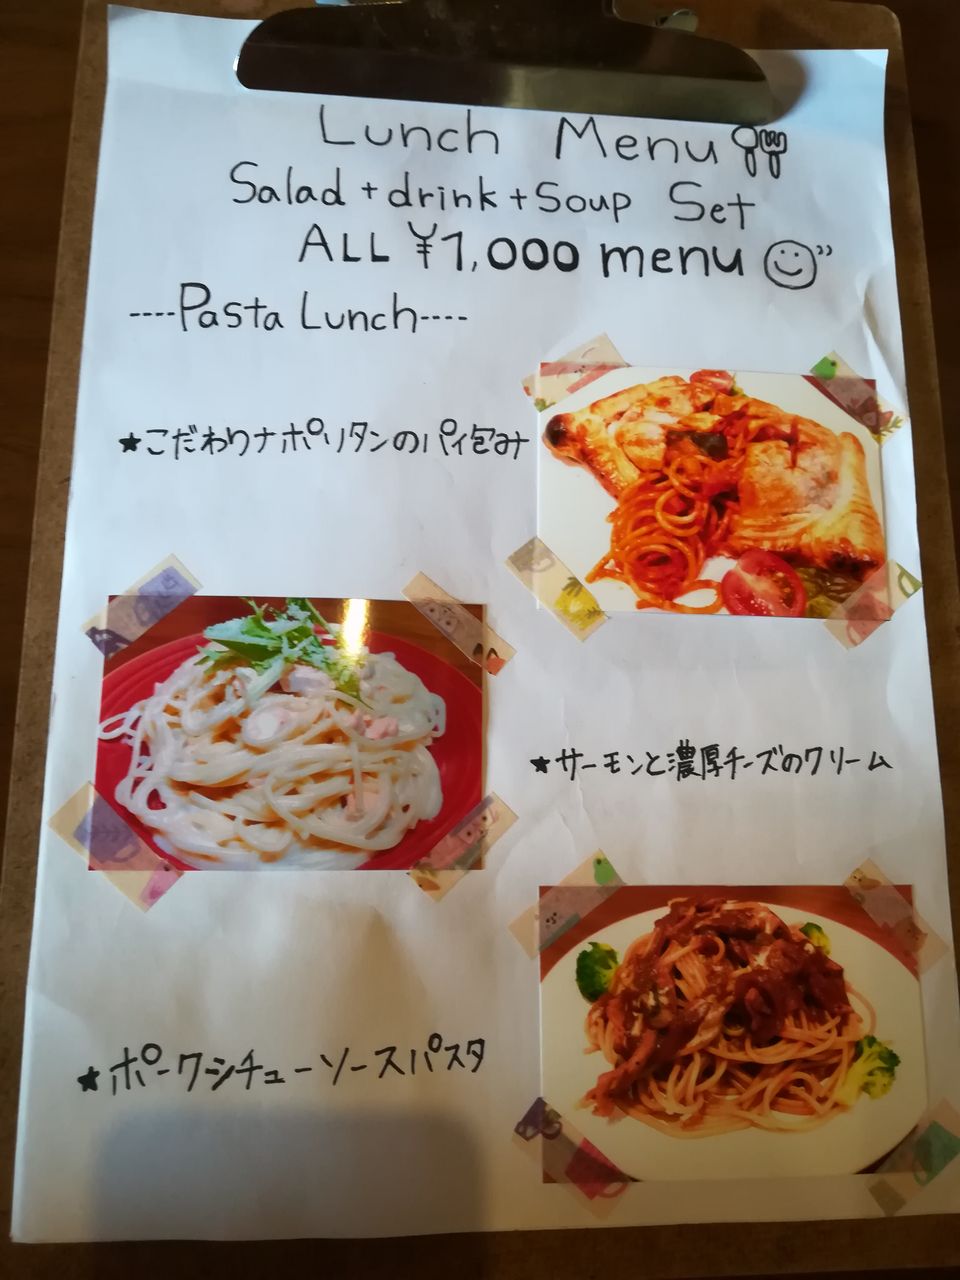 Lunch Menu
Salad + drink + Soup Set
ALL ¥1,000 menu
----Pasta Lunch----
★こだわりナポリタンのパイ包み
★サーモンと濃厚チーズのクリーム
★ポークシチューソースパスタ